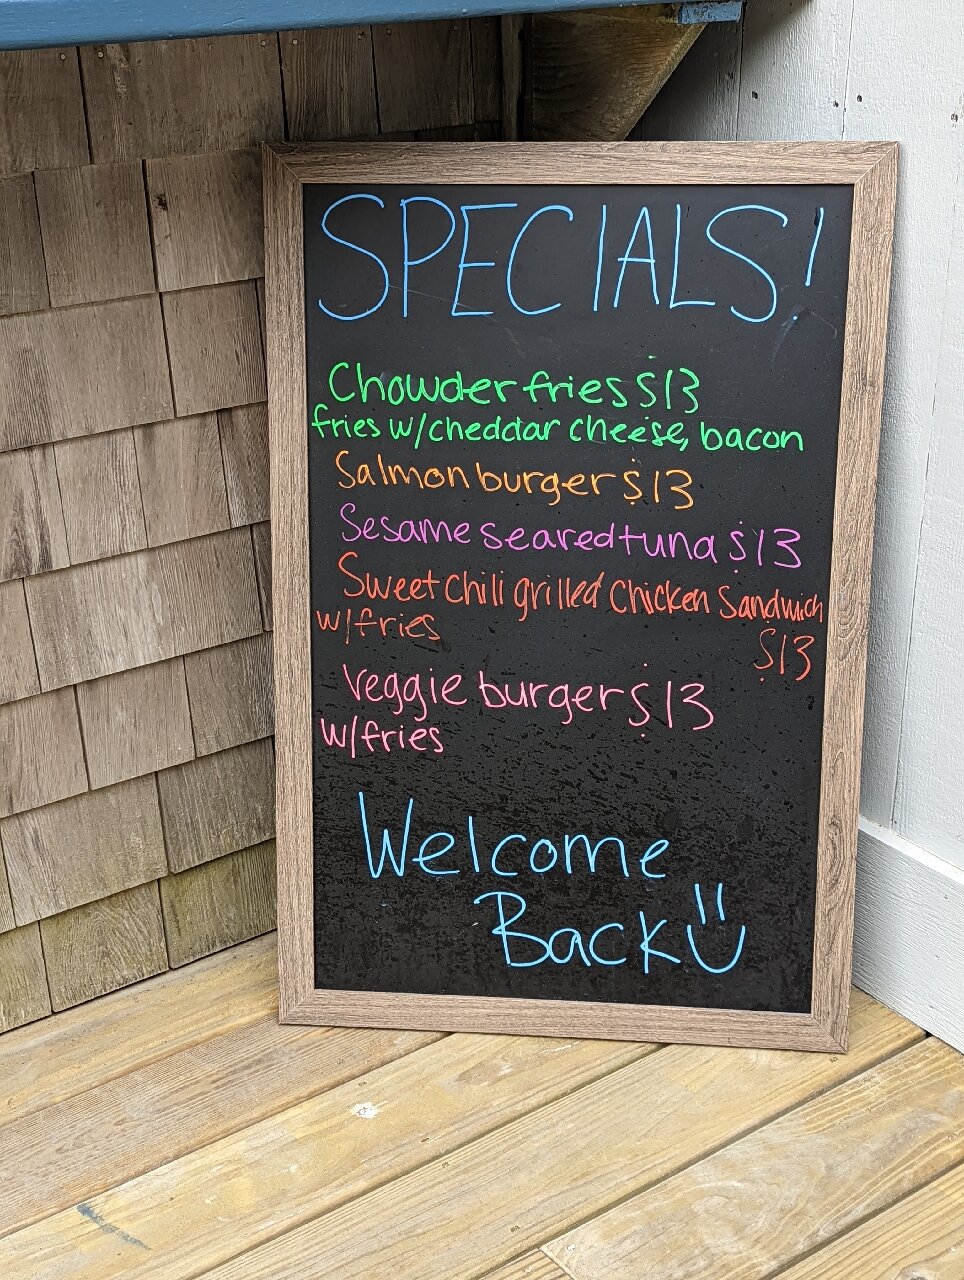 SPECIALS!
Chowder fries $13
fries w/cheddar cheese, bacon
Salmon burger $13
Sesame seared tuna $13
Sweet chili grilled chicken Sandwich
w/fries $13
Veggie burger $13
w/fries
Welcome
Back